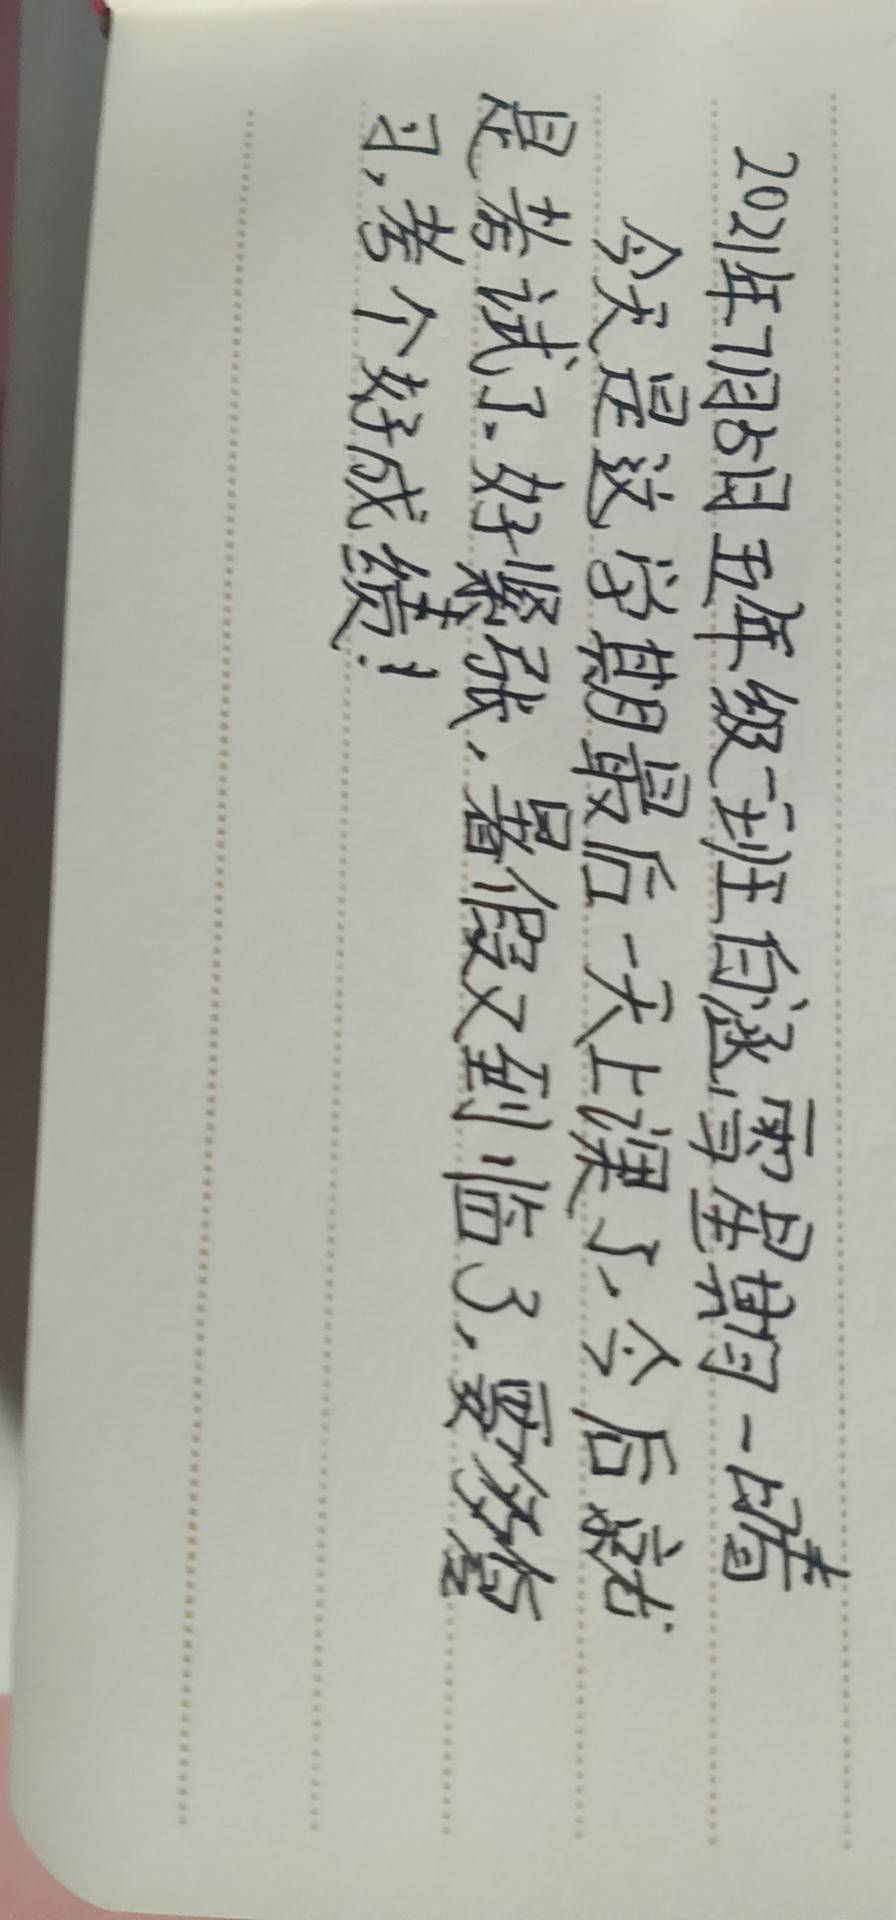 2021年7月5日五年级一班白涵雪星期一晴
今天是这学期最后一天上课了,今后就
是考试了。好紧张,暑假又到临了,要努力复
习,考个好成绩!